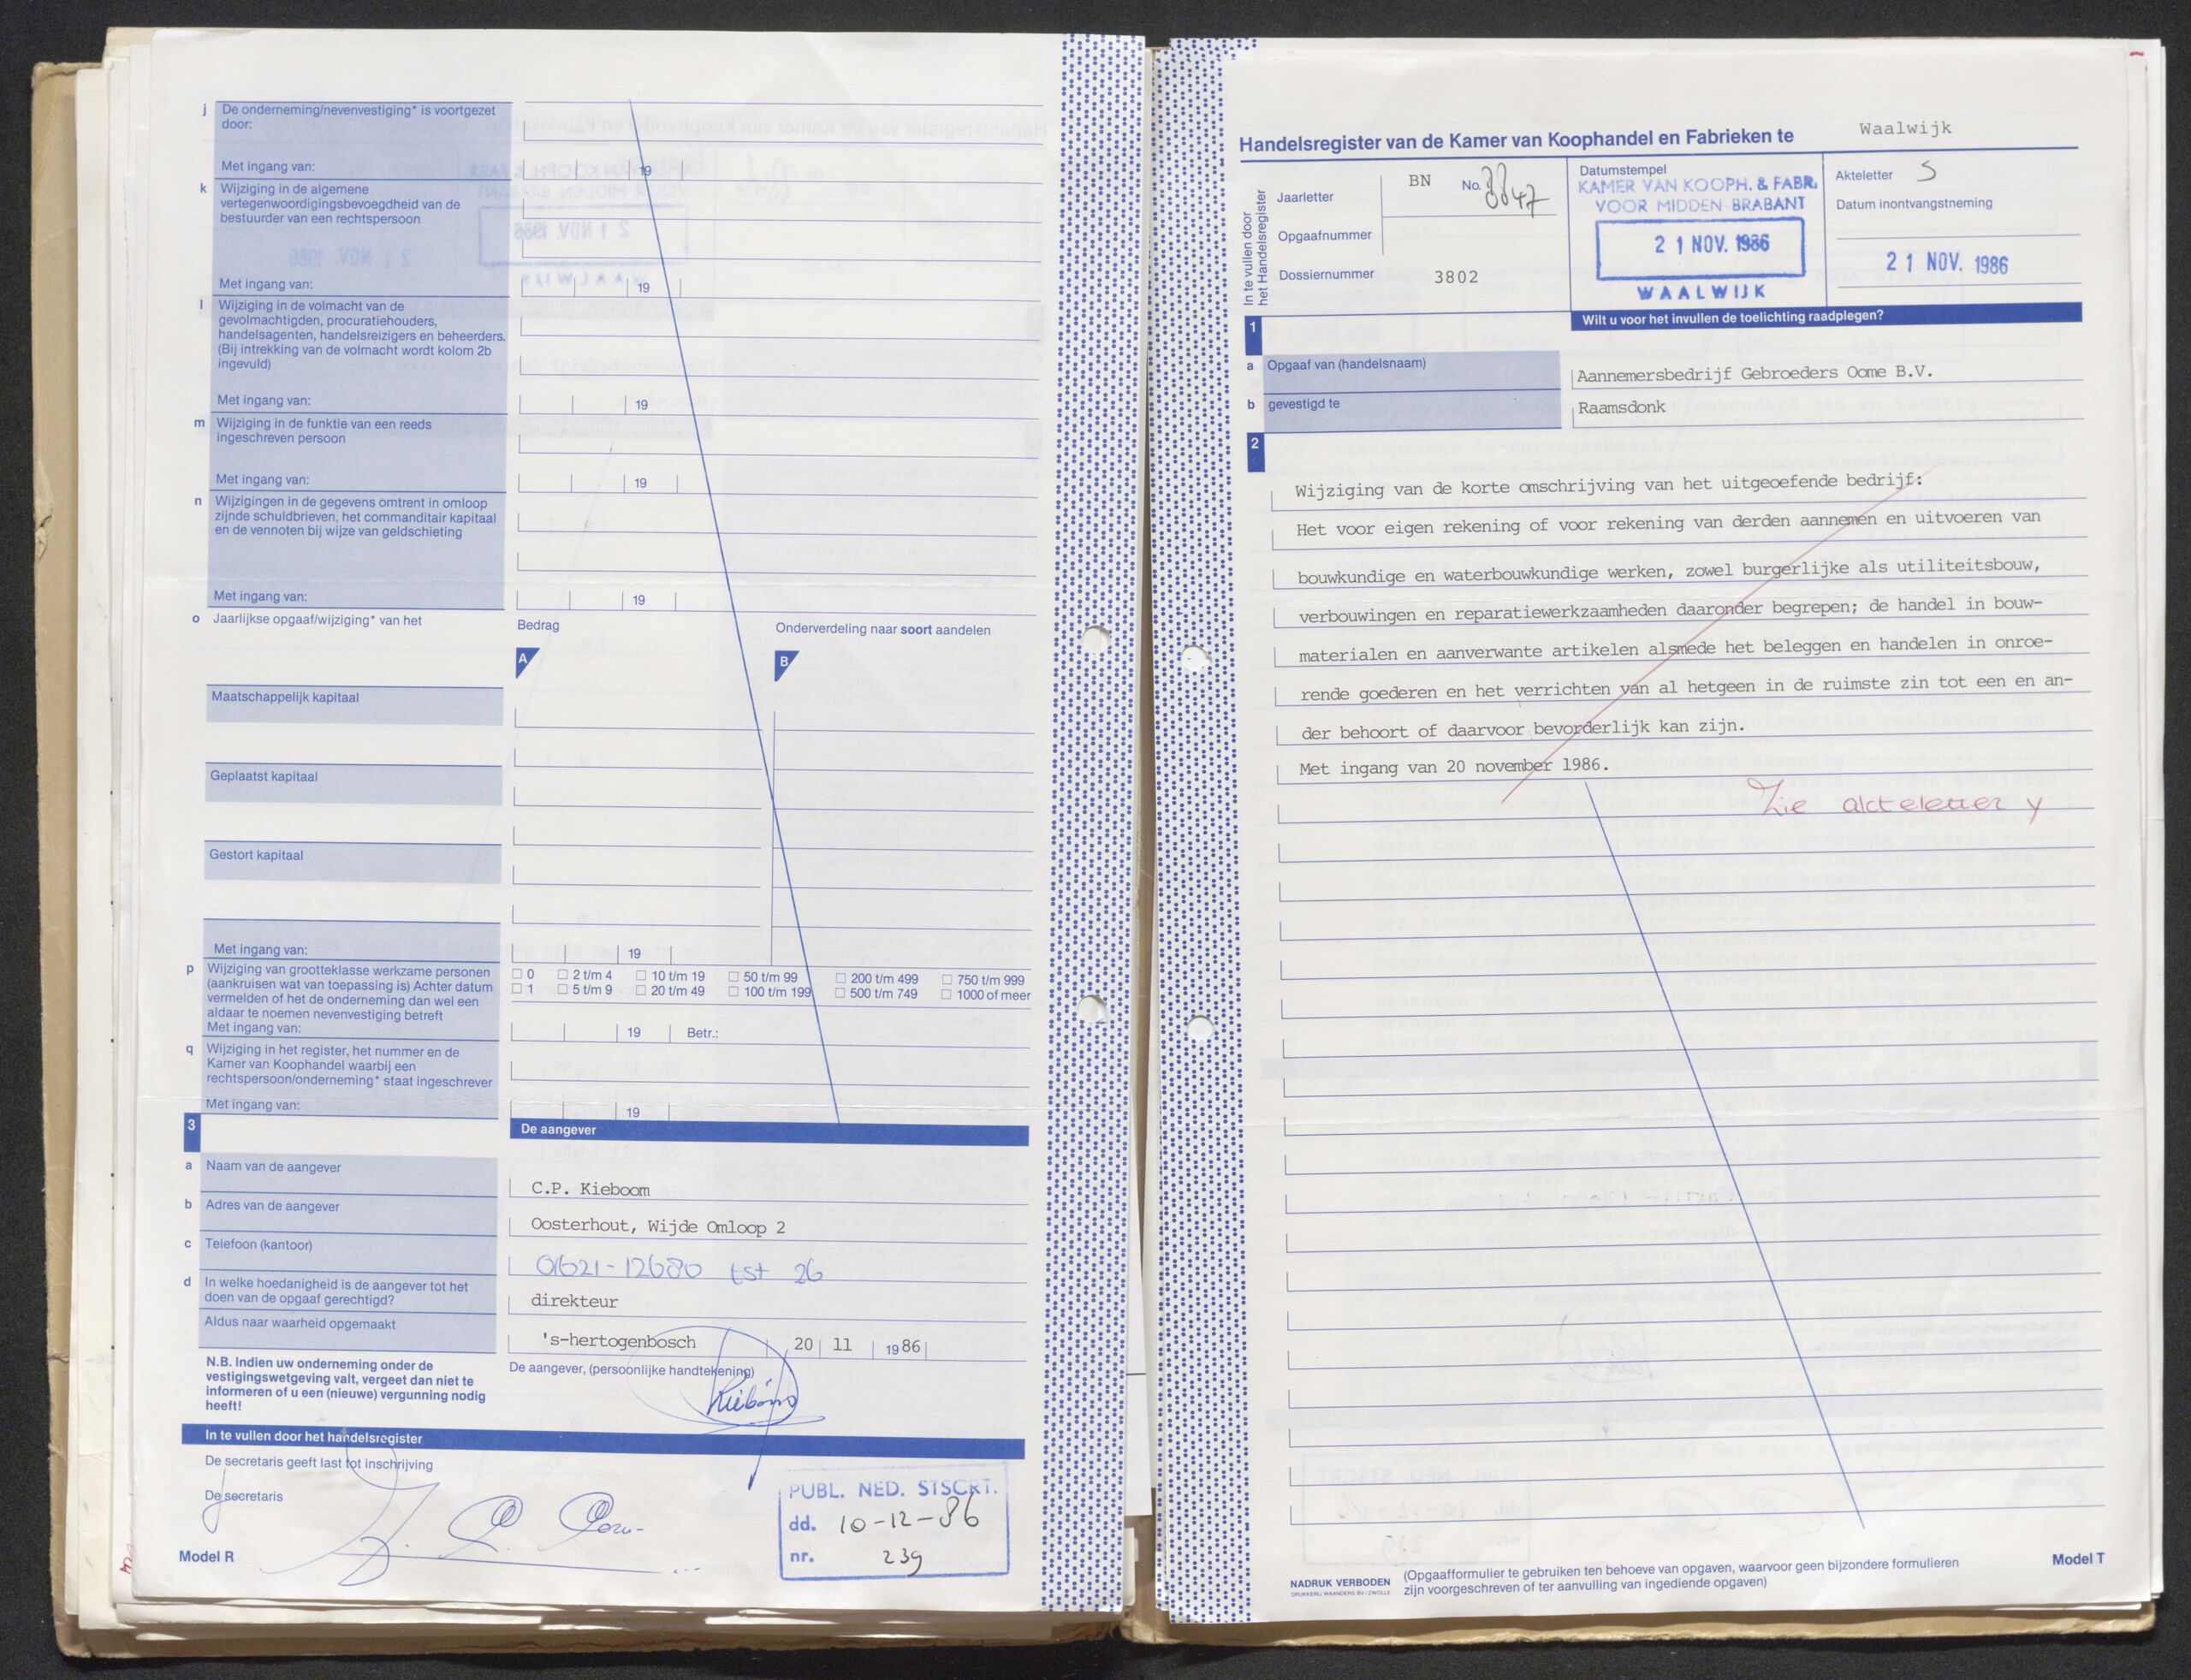 j De onderneming/nevenvestiging* is voortgezet
door:
Met ingang van: 19
k Wijziging in de algemene
vertegenwoordigingsbevoegdheid van de
bestuurder van een rechtspersoon
Met ingang van: 19
l Wijziging in de volmacht van de
gevolmachtigden, procuratiehouders,
handelsagenten, handelsreizigers en beheerders.
(Bij intrekking van de volmacht wordt kolom 2b
ingevuld)
Met ingang van: 19
m Wijziging in de funktie van een reeds
ingeschreven persoon
Met ingang van: 19
n Wijzigingen in de gegevens omtrent in omloop
zijnde schuldbrieven, het commanditair kapitaal
en de vennoten bij wijze van geldschieting
Met ingang van: 19
o Jaarlijkse opgaaf/wijziging* van het
Bedrag Onderverdeling naar soort aandelen
A B
Maatschappelijk kapitaal
Geplaatst kapitaal
Gestort kapitaal
Met ingang van: 19
p Wijziging van grootteklasse werkzame personen
(aankruisen wat van toepassing is) Achter datum
vermelden of het de onderneming dan wel een
aldaar te noemen nevenvestiging betreft
☐ 0 ☐ 2 t/m 4 ☐ 10 t/m 19 ☐ 50 t/m 99 ☐ 200 t/m 499 ☐ 750 t/m 999
☐ 1 ☐ 5 t/m 9 ☐ 20 t/m 49 ☐ 100 t/m 199 ☐ 500 t/m 749 ☐ 1000 of meer
Met ingang van: 19 Betr.:
q Wijziging in het register, het nummer en de
Kamer van Koophandel waarbij een
rechtspersoon/onderneming* staat ingeschrever
Met ingang van: 19
3 De aangever
a Naam van de aangever C.P. Kieboom
b Adres van de aangever Oosterhout, Wijde Omloop 2
c Telefoon (kantoor) 01621-12680 tst 26
d In welke hoedanigheid is de aangever tot het
doen van de opgaaf gerechtigd? direkteur
Aldus naar waarheid opgemaakt 's-hertogenbosch 20 11 1986
N.B. Indien uw onderneming onder de
vestigingswetgeving valt, vergeet dan niet te
informeren of u een (nieuwe) vergunning nodig
heeft!
De aangever, (persoonlijke handtekening)
Kieboom
In te vullen door het handelsregister
De secretaris geeft last tot inschrijving
De secretaris
PUBL. NED. STSCRT.
dd. 10-12-86
nr. 239
Model R
Handelsregister van de Kamer van Koophandel en Fabrieken te Waalwijk
In te vullen door
het Handelsregister
Jaarletter BN No. 3847
Opgaafnummer
Dossiernummer 3802
Datumstempel
KAMER VAN KOOPH. & FABR.
VOOR MIDDEN-BRABANT
21 NOV. 1986
WAALWIJK
Akteletter S
Datum inontvangstneming
21 NOV. 1986
1 Wilt u voor het invullen de toelichting raadplegen?
a Opgaaf van (handelsnaam) Aannemersbedrijf Gebroeders Oome B.V.
b gevestigd te Raamsdonk
2
Wijziging van de korte omschrijving van het uitgeoefende bedrijf:
Het voor eigen rekening of voor rekening van derden aannemen en uitvoeren van
bouwkundige en waterbouwkundige werken, zowel burgerlijke als utiliteitsbouw,
verbouwingen en reparatiewerkzaamheden daaronder begrepen; de handel in bouw-
materialen en aanverwante artikelen alsmede het beleggen en handelen in onroe-
rende goederen en het verrichten van al hetgeen in de ruimste zin tot een en an-
der behoort of daarvoor bevorderlijk kan zijn.
Met ingang van 20 november 1986.
Zie akteletter y
NADRUK VERBODEN
DRUKKERIJ WAANDERS BV / ZWOLLE
(Opgaafformulier te gebruiken ten behoeve van opgaven, waarvoor geen bijzondere formulieren
zijn voorgeschreven of ter aanvulling van ingediende opgaven)
Model T